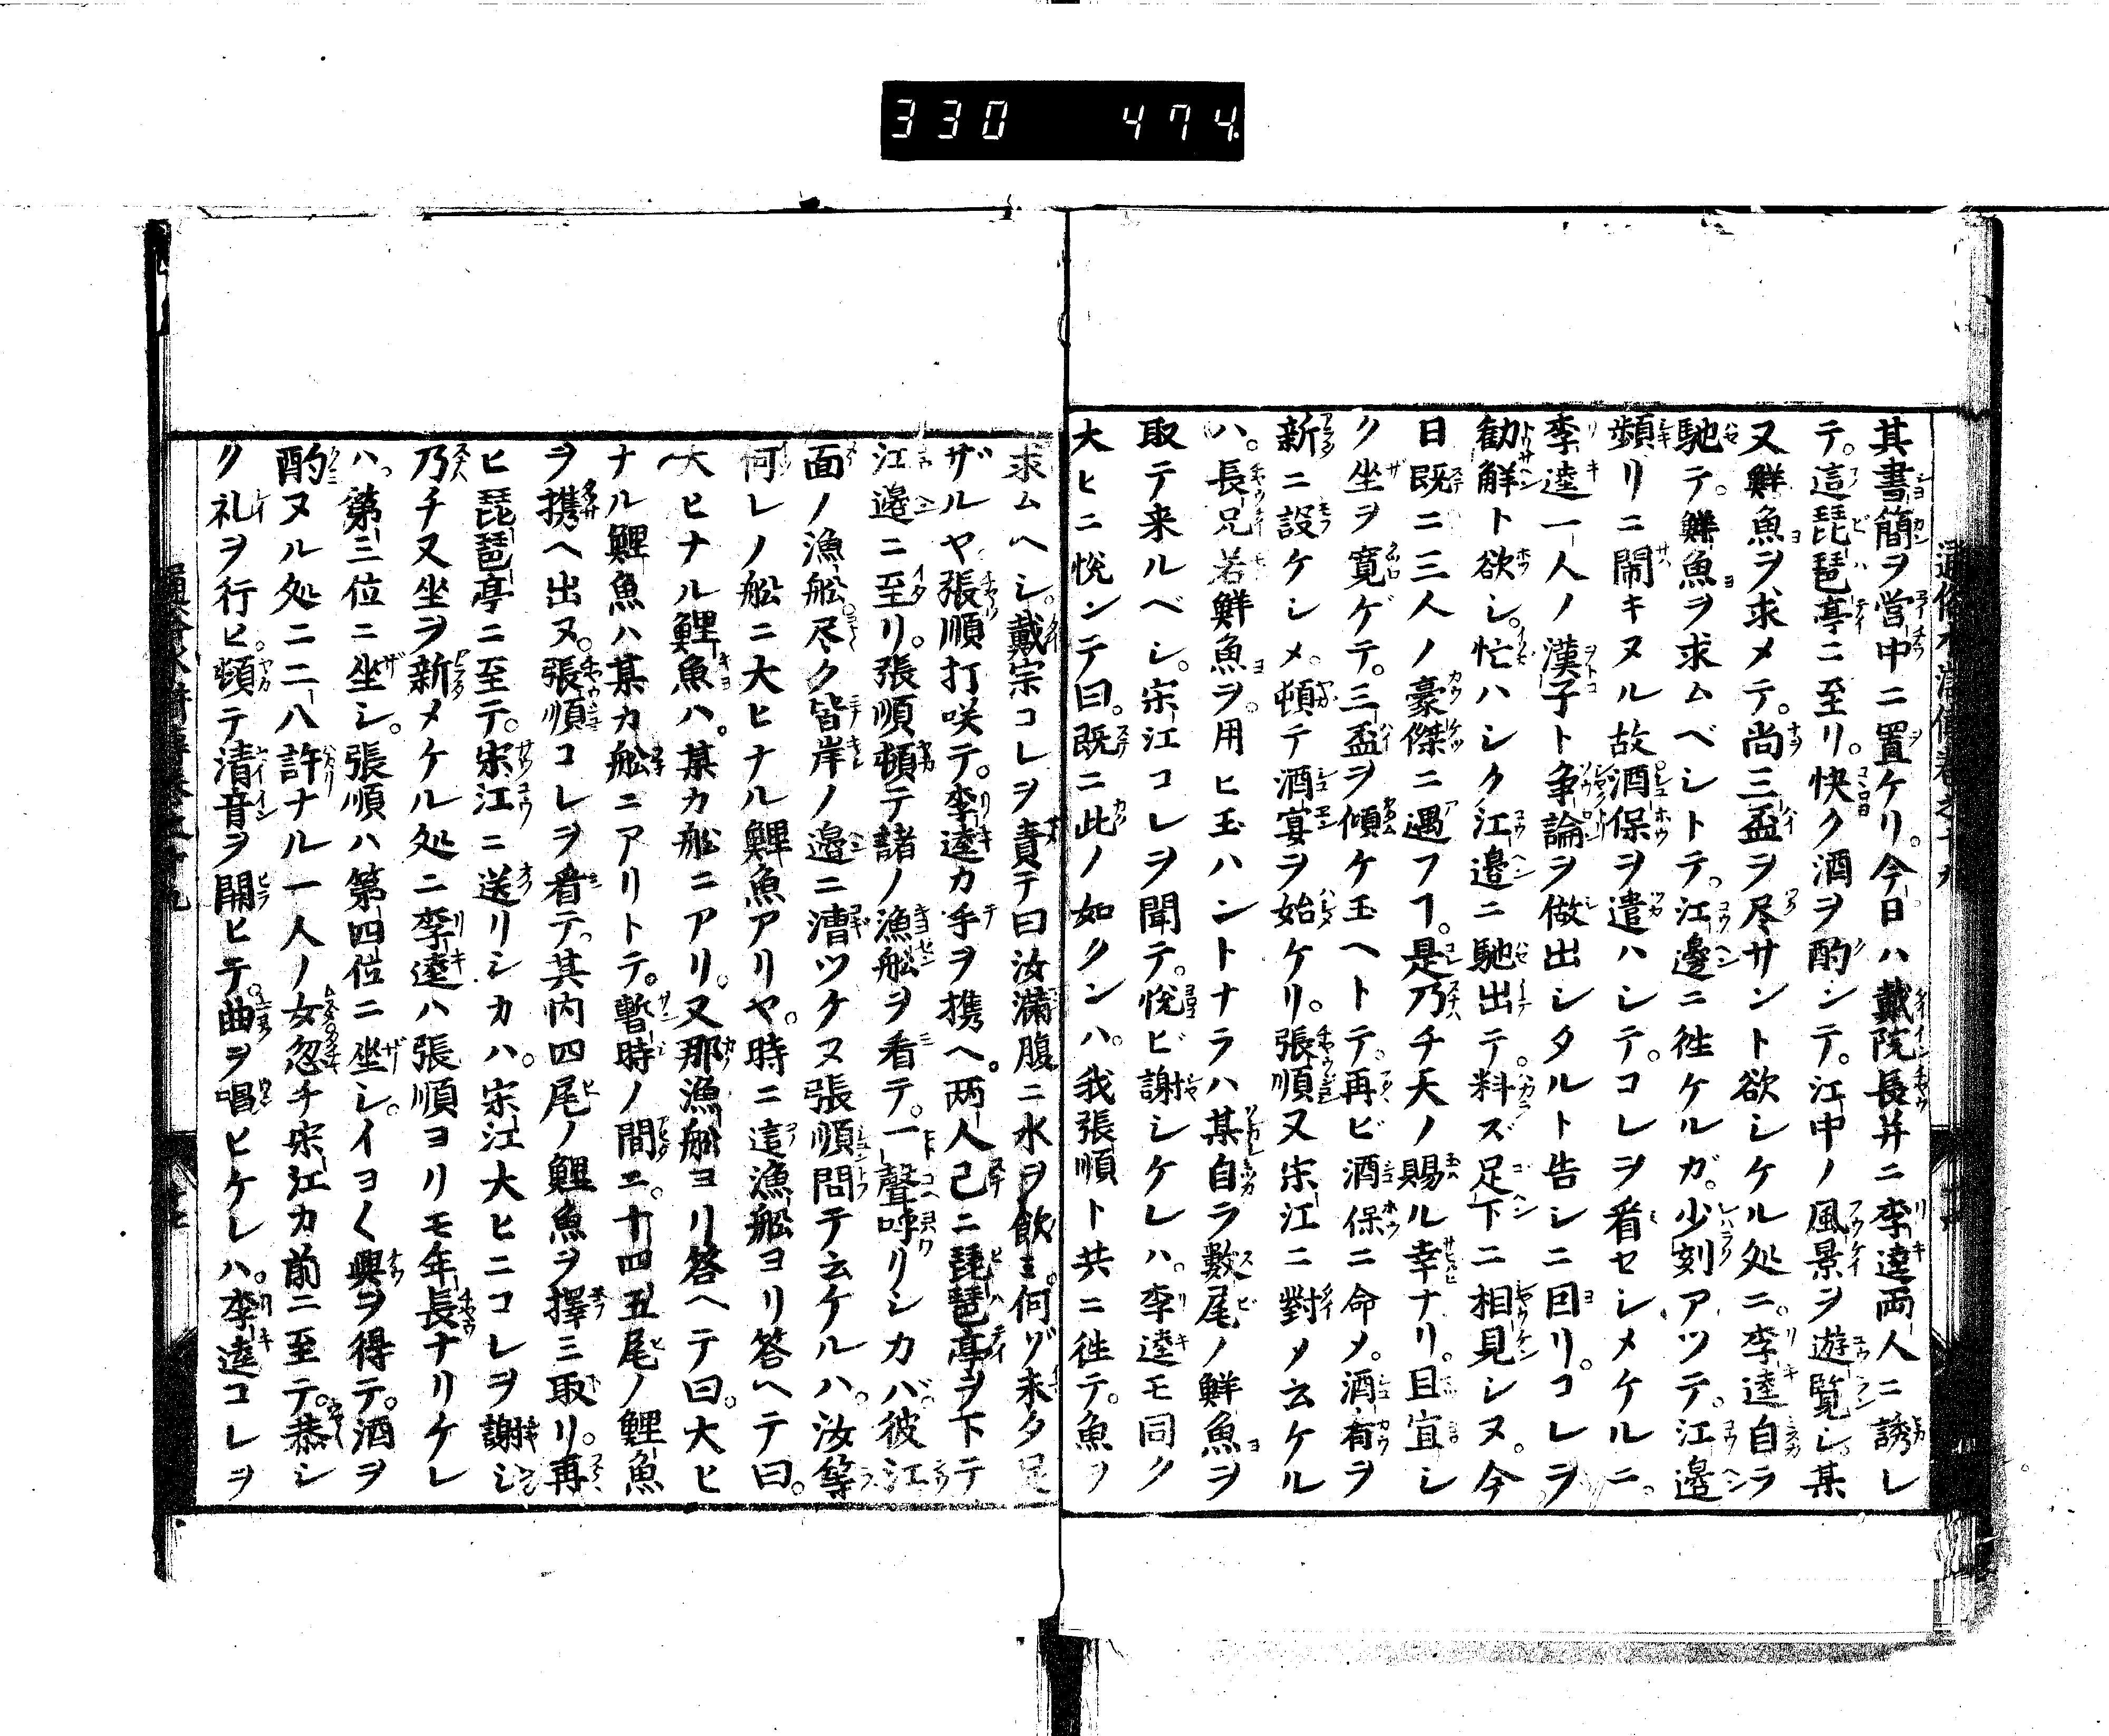 330 474
其書簡ヲ営中ニ置ケリ。今日ハ戴院長并ニ李逵両人ニ誘レ
テ。這琵琶亭ニ至リ。快ク酒ヲ酌ンテ。江中ノ風景ヲ遊覧シ。某
又鮮魚ヲ求メテ。尚三盃ヲ尽サント欲シケル処ニ。李逵自ラ
馳テ。鮮魚ヲ求ムベシトテ。江邊ニ徃ケルガ。少刻アツテ。江邊
頻リニ閙キヌル故。酒保ヲ遣ハシテ。コレヲ看セシメケルニ。
李逵一人ノ漢子ト争論ヲ做出シタルト告シニ因リ。コレヲ
勧解ト欲シ。忙ハシク江邊ニ馳出テ。料ズ足下ニ相見シヌ。今
日既ニ三人ノ豪傑ニ遇フヿ。是乃チ天ノ賜ル幸ナリ。且宜シ
ク坐ヲ寛ゲテ。三盃ヲ傾ケ玉ヘトテ。再ビ酒保ニ命メ。酒肴ヲ
新ニ設ケシメ。頓テ酒宴ヲ始ケリ。張順又宋江ニ對メ云ケル
ハ。長兄若鮮魚ヲ。用ヒ玉ハントナラハ某自ラ數尾ノ鮮魚ヲ
取テ来ルベシ。宋江コレヲ聞テ。悦ビ謝シケレハ。李逵モ同ク
大ヒニ悦ンテ曰。既ニ此ノ如クンハ。我張順ト共ニ徃テ。魚ヲ
求ムヘシ。戴宗コレヲ責テ曰汝滿腹ニ水ヲ飲ミ。何ゾ未タ足
ザルヤ。張順打咲テ。李逵カ手ヲ携ヘ。两人已ニ琵琶亭ヲ下テ
江邉ニ至リ。張順頓テ諸ノ漁舩ヲ看テ。一聲呼リシカバ。彼江
面ノ漁舩。尽ク皆岸ノ邉ニ漕ツケヌ張順問テ云ケルハ。汝等
何レノ船ニ大ヒナル鯉魚アリヤ。時ニ這漁船ヨリ答ヘテ曰。
大ヒナル鯉魚ハ。某カ船ニアリ。又那漁舩ヨリ答ヘテ曰。大ヒ
ナル鯉魚ハ某カ舩ニアリトテ。暫時ノ間ニ。十四五尾ノ鯉魚
ヲ携ヘ出ヌ。張順コレヲ看テ。其内四尾ノ鯉魚ヲ擇ミ取リ。再
ヒ琵琶亭ニ至テ。宋江ニ送リシカハ。宋江大ヒニコレヲ謝シ
乃チ又坐ヲ新メケル処ニ李逵ハ張順ヨリモ年長ナリケレ
ハ。第三位ニ坐シ。張順ハ第四位ニ坐シ。イヨく興ヲ得テ。酒ヲ
酌ヌル処ニ二八許ナル一人ノ女忽チ宋江カ前ニ至テ。恭シ
ク礼ヲ行ヒ。頓テ清音ヲ開ヒテ。曲ヲ唱ヒケレハ。李逵コレヲ